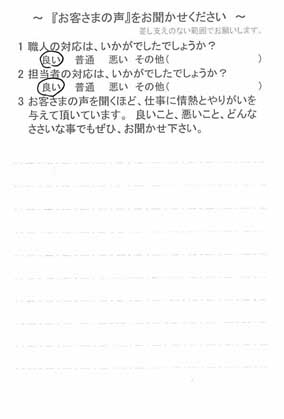 ～ 『お客さまの声』をお聞かせください ～
差し支えのない範囲でお願いします。
1 職人の対応は、いかがでしたでしょうか？
良い 普通 悪い その他( )
2 担当者の対応は、いかがでしたでしょうか？
良い 普通 悪い その他( )
3 お客さまの声を聞くほど、仕事に情熱とやりがいを
与えて頂いています。 良いこと、悪いこと、どんな
ささいな事でもぜひ、お聞かせ下さい。